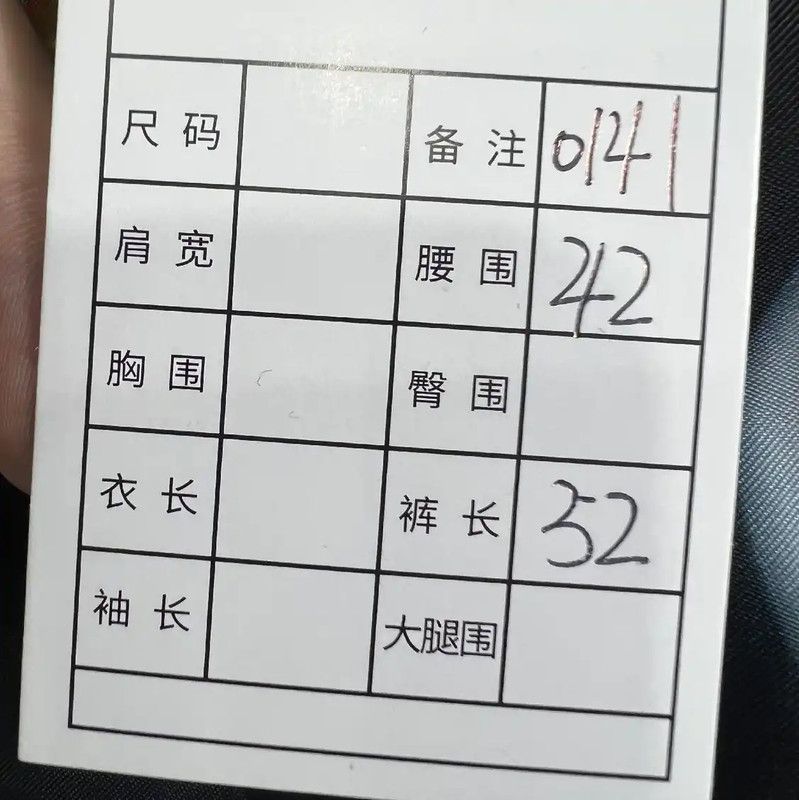 尺码 备注 0141
肩宽 腰围 42
胸围 臀围
衣长 裤长 52
袖长 大腿围